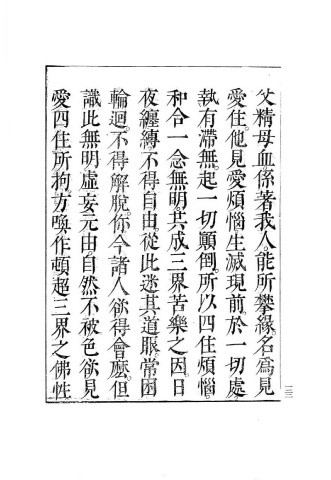 父精母血係著我人能所攀緣名爲見
愛住他見愛煩惱生滅現前於一切處
執有滯無起一切顚倒所以四住煩惱
和合一念無明共成三界苦樂之因日
夜纏縛不得自由從此迷其道眼常困
輪迴不得解脫你今諸人欲得會麽但
識此無明虛妄元由自然不被色欲見
愛四住所拘方喚作頓超三界之佛性